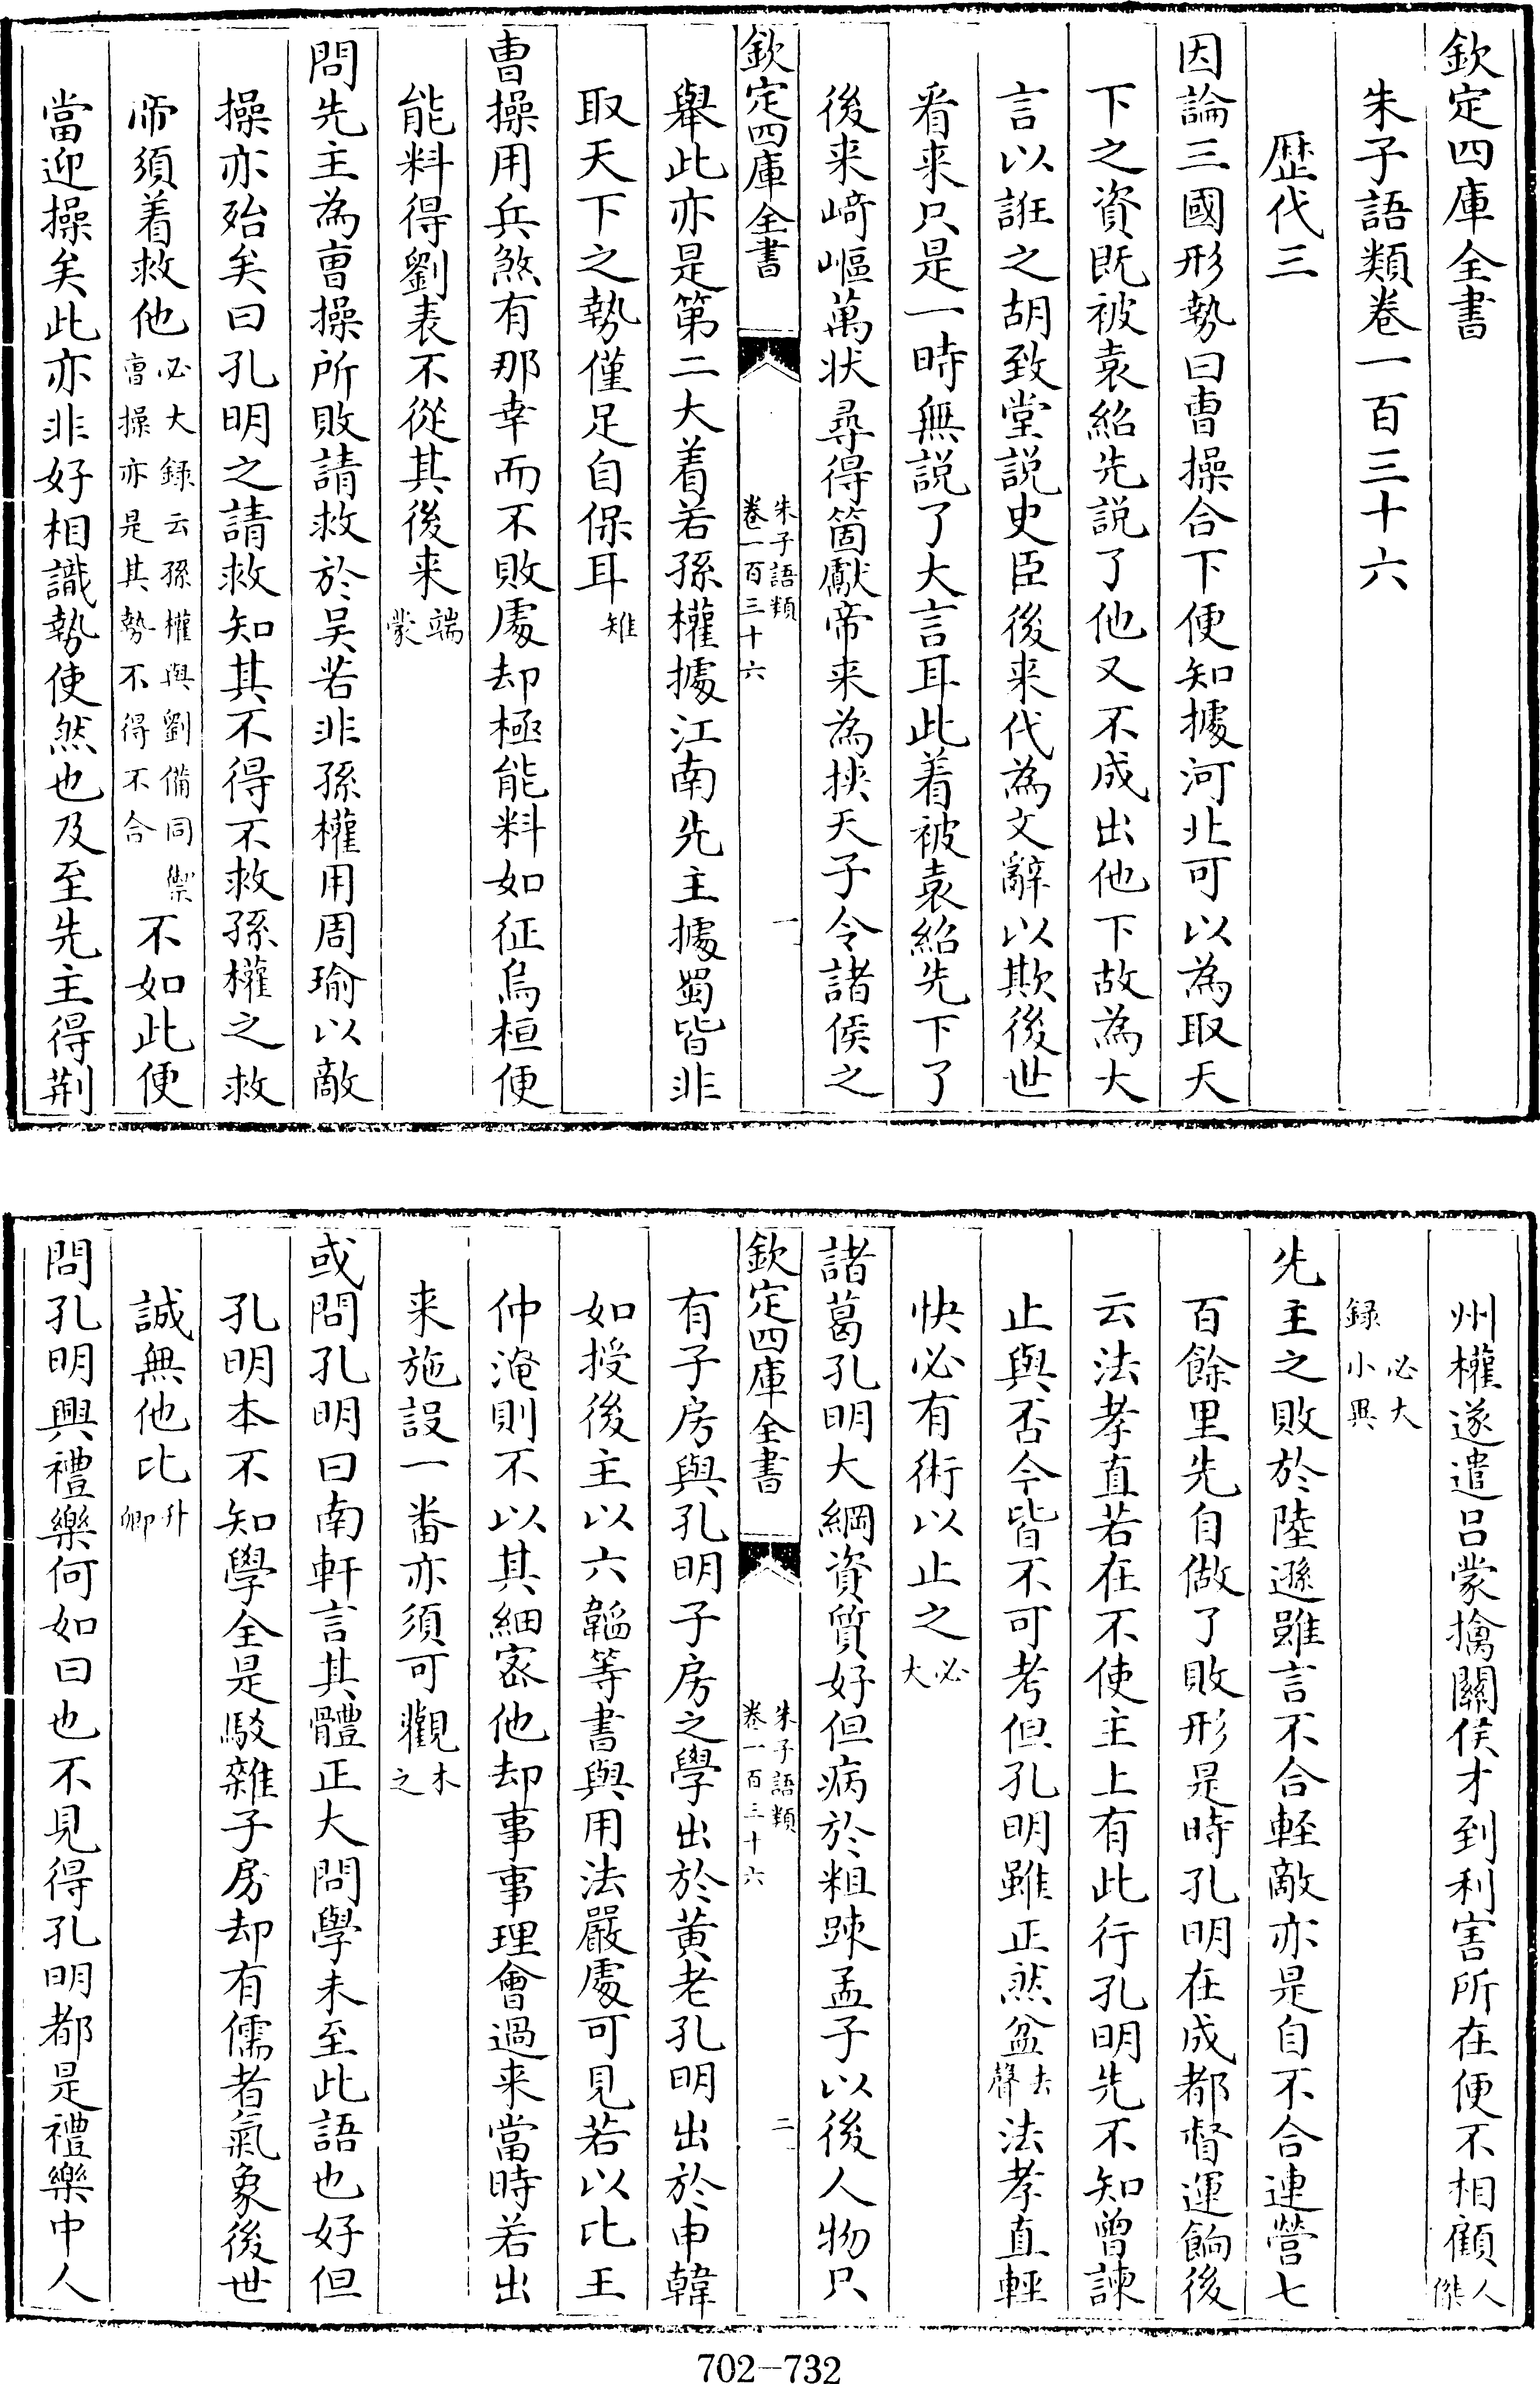 欽定四庫全書
朱子語類卷一百三十六
歷代三
因論三國形勢曰曹操合下便知據河北可以為取天
下之資既被袁紹先説了他又不成出他下故為大
言以誑之胡致堂説史臣後来代為文辭以欺後世
看来只是一時無説了大言耳此着被袁紹先下了
後来崎嶇萬状尋得箇獻帝来為挾天子令諸侯之
欽定四庫全書
朱子語類
卷一百三十六
一
舉此亦是第二大着若孫權據江南先主據蜀皆非
取天下之勢僅足自保耳雉
曹操用兵煞有那幸而不敗處却極能料如征烏桓便
能料得劉表不從其後来端蒙
問先主為曹操所敗請救於吴若非孫權用周瑜以敵
操亦殆矣曰孔明之請救知其不得不救孫權之救
帝須着救他必大録云孫權與劉備同禦曹操亦是其勢不得不合不如此便
當迎操矣此亦非好相識勢使然也及至先主得荆
州權遂遣吕蒙擒關侯才到利害所在便不相顧人傑
必大録小異
先主之敗於陸遜雖言不合輕敵亦是自不合連營七
百餘里先自做了敗形是時孔明在成都督運餉後
云法孝直若在不使主上有此行孔明先不知曾諫
止與否今皆不可考但孔明雖正然盆去聲法孝直輕
快必有術以止之必大
諸葛孔明大綱資質好但病於粗踈孟子以後人物只
欽定四庫全書
朱子語類
卷一百三十六
二
有子房與孔明子房之學出於黄老孔明出於申韓
如授後主以六韜等書與用法嚴處可見若以比王
仲淹則不以其細密他却事事理會過来當時若出
来施設一番亦須可觀木之
或問孔明曰南軒言其體正大問學未至此語也好但
孔明本不知學全是駁雜子房却有儒者氣象後世
誠無他比升卿
問孔明興禮樂何如曰也不見得孔明都是禮樂中人
702-732